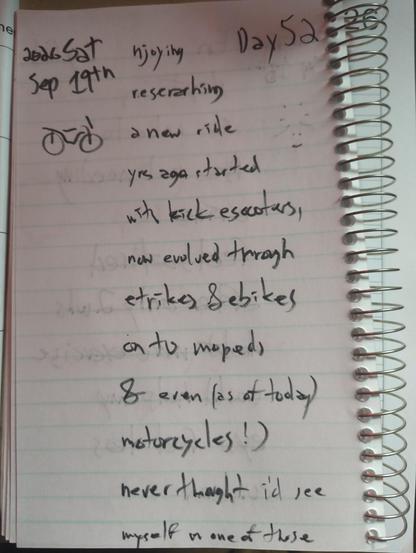 2026 Sat
Sep 19th
Day 52
26
njoying
reserarhing
a new ride
yrs ago started
with kick escooters,
now evolved through
etrikes & ebikes
on to mopeds
& even (as of today)
motorcycles!)
never thought i'd see
myself on one of those